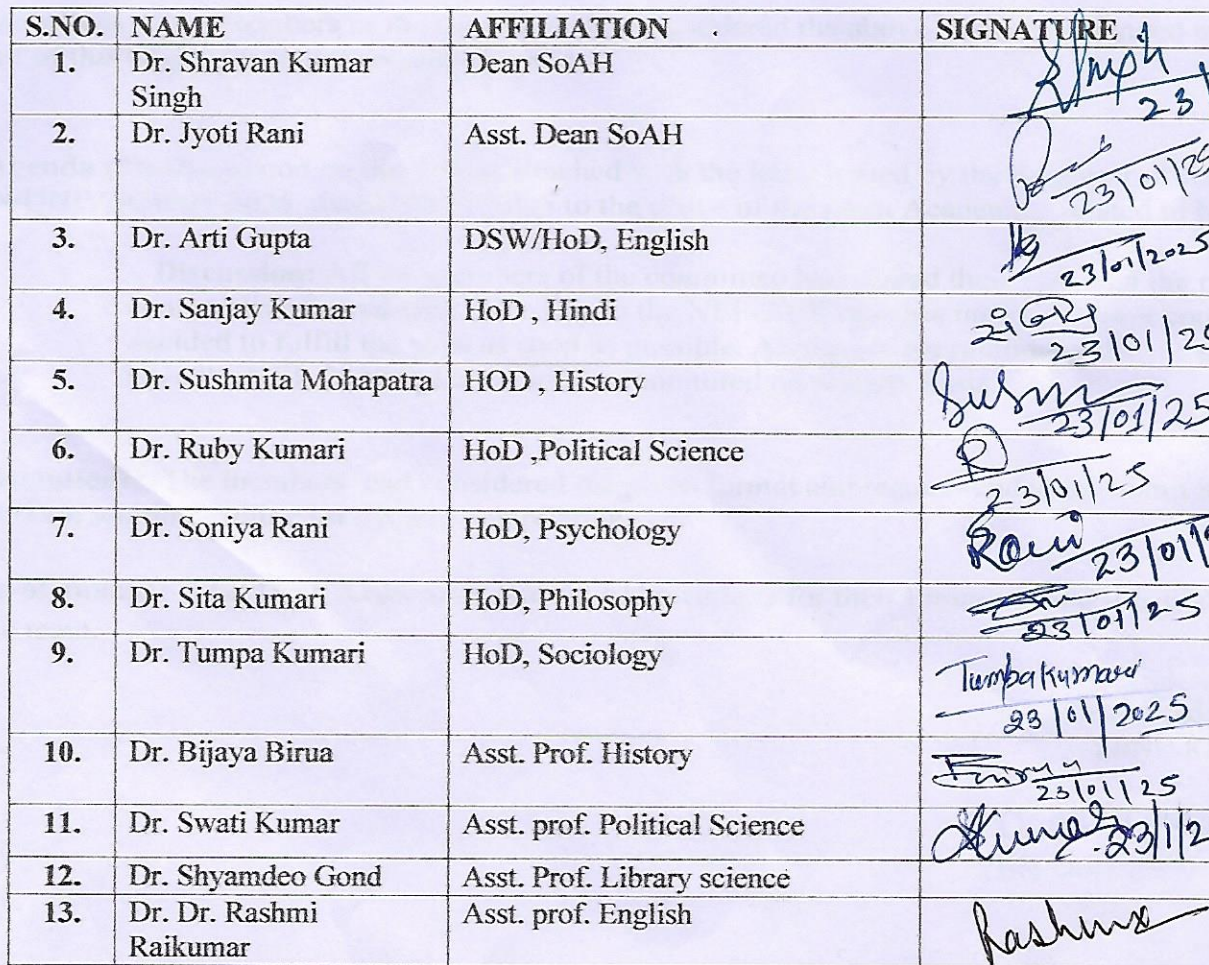 S.NO. NAME AFFILIATION SIGNATURE
1. Dr. Shravan Kumar Singh Dean SoAH Singh 23
2. Dr. Jyoti Rani Asst. Dean SoAH 23/01/25
3. Dr. Arti Gupta DSW/HoD, English 23/01/2025
4. Dr. Sanjay Kumar HoD , Hindi 23/01/2
5. Dr. Sushmita Mohapatra HOD , History 23/01/25
6. Dr. Ruby Kumari HoD ,Political Science 23/01/25
7. Dr. Soniya Rani HoD, Psychology Rani 23/01/
8. Dr. Sita Kumari HoD, Philosophy 23/01/25
9. Dr. Tumpa Kumari HoD, Sociology Tumpa Kumari 23/01/2025
10. Dr. Bijaya Birua Asst. Prof. History 23/01/25
11. Dr. Swati Kumar Asst. prof. Political Science 23/1/2
12. Dr. Shyamdeo Gond Asst. Prof. Library science
13. Dr. Dr. Rashmi Raikumar Asst. prof. English Rashmi